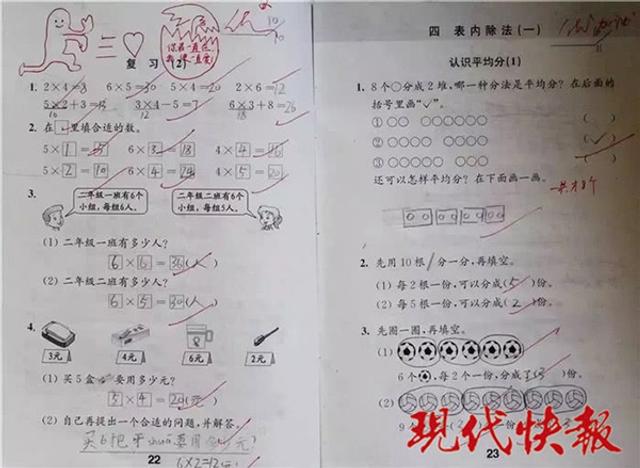 复 习 (2)
1. 2×4=8 6×5=30 5×4=20 2×6=12
5×2+3=13 3×4-5=7 6×3+8=26
12 18
2. 在□里填合适的数。
5×1=5 6×3=18 4×4=16
5×2=10 6×4=24 4×5=20
3. 二年级一班有6个小组,每组6人。
二年级二班有6个小组,每组5人。
(1) 二年级一班有多少人?
6×6=36(人)
(2) 二年级二班有多少人?
6×5=30(人)
4.
3元 4元 6元 2元
(1) 买5盒 要用多少元?
5×4=20(元)
(2) 自己再提出一个合适的问题,并解答。
买6把牙shuā要用多少元?
22
6×2=12
四 表内除法(一)
认识平均分(1)
1. 8个○分成2堆,哪一种分法是平均分?在后面的
括号里画“✓”。
① ○○○ ○○○○○ ( )
② ○○○○ ○○○○ (✓)
③ ○○ ○○○○○○ ( )
还可以怎样平均分?在下面画一画。
共8个
2. 先用10根 分一分,再填空。
(1) 每2根一份,可以分成(5)份。
(2) 每5根一份,可以分成(2)份。
3. 先圈一圈,再填空。
(1)
6个 ,每2个一份,分成了(3)份。
(2)
9个
现代快報
23